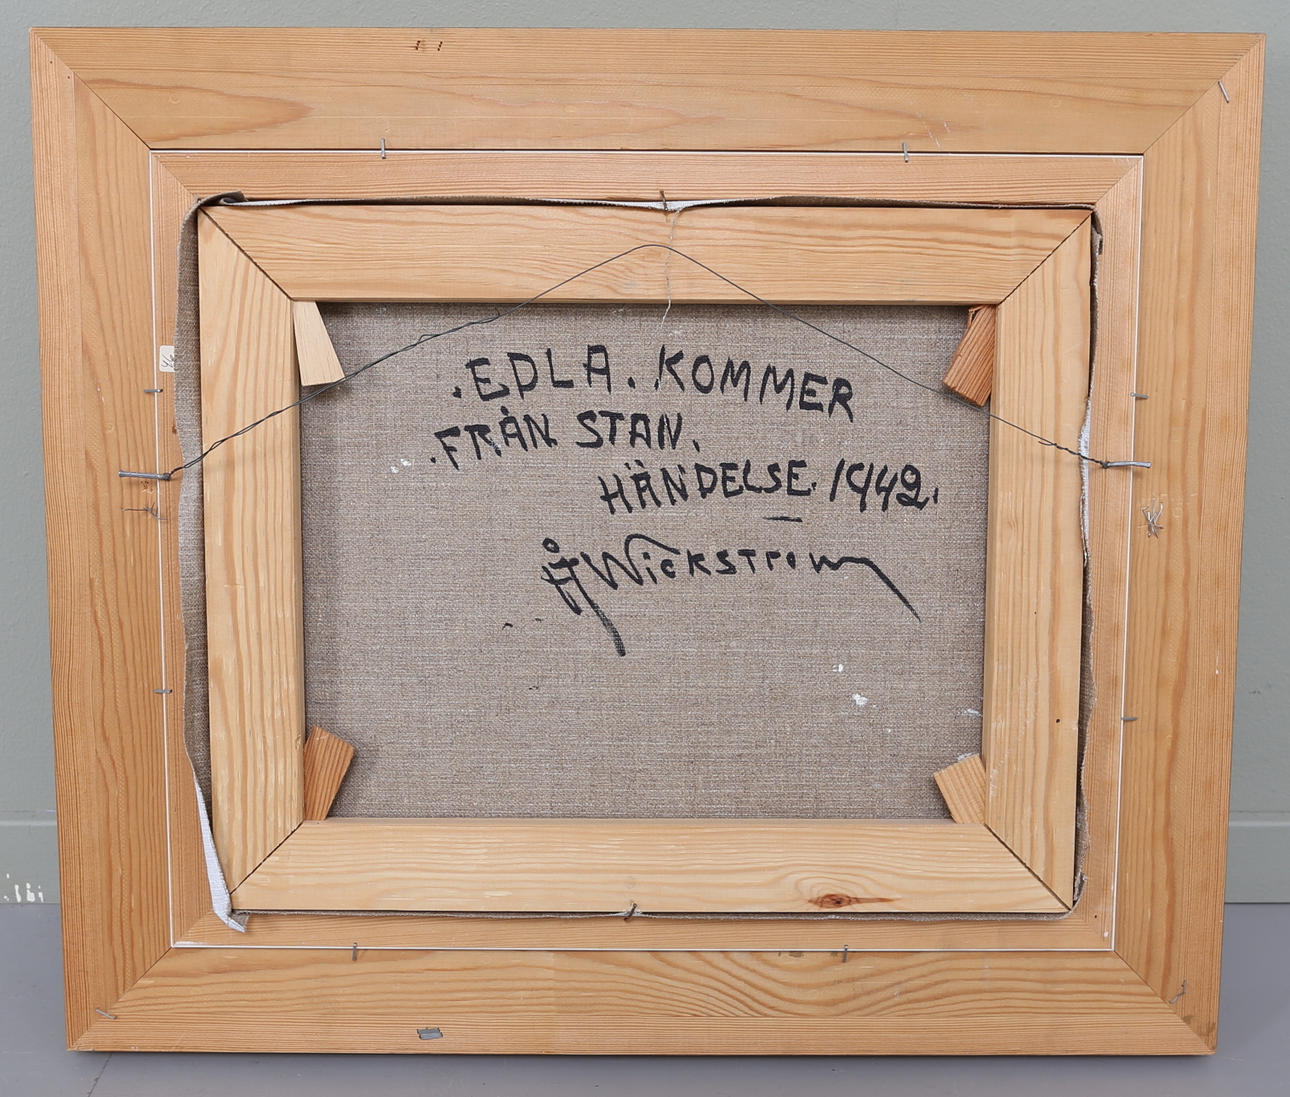 .EDLA. KOMMER
.FRÅN STAN.
HÄNDELSE. 1942.
Wickstrom